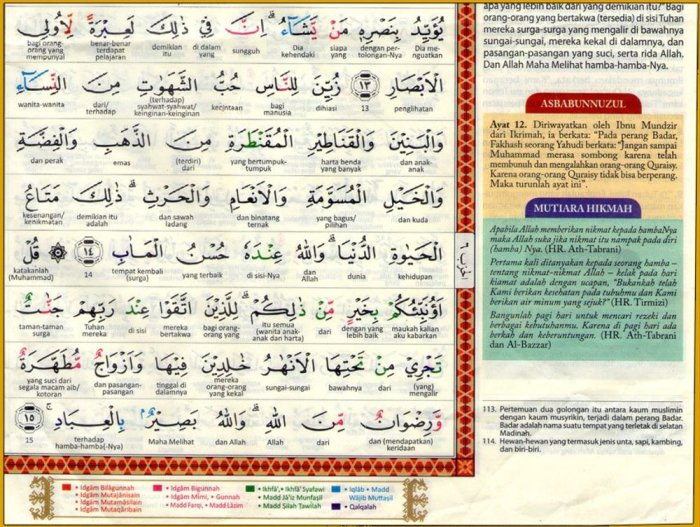 يُؤَيِّدُ بِنَصْرِهِ مَنْ يَشَاءُ ۗ إِنَّ فِي ذَٰلِكَ لَعِبْرَةً لِأُولِي
Dia menguatkan
dengan pertolongan-Nya
siapa yang
Dia kehendaki
sungguh
di dalam
demikian itu
benar-benar terdapat pelajaran
bagi orang-orang yang mempunyai
الْأَبْصَارِ ﴿١٣﴾ زُيِّنَ لِلنَّاسِ حُبُّ الشَّهَوَاتِ مِنَ النِّسَاءِ
penglihatan
13
dihiasi
bagi manusia
kecintaan
(terhadap) syahwat-syahwat/keinginan-keinginan
dari/terhadap
wanita-wanita
وَالْبَنِينَ وَالْقَنَاطِيرِ الْمُقَنْطَرَةِ مِنَ الذَّهَبِ وَالْفِضَّةِ
dan anak-anak
dan harta benda yang banyak
yang bertumpuk-tumpuk
(terdiri) dari
emas
dan perak
وَالْخَيْلِ الْمُسَوَّمَةِ وَالْأَنْعَامِ وَالْحَرْثِ ۗ ذَٰلِكَ مَتَاعُ
dan kuda
yang bagus/pilihan
dan binatang ternak
dan sawah ladang
demikian itu adalah
kesenangan/kenikmatan
الْحَيٰوةِ الدُّنْيَا ۖ وَاللَّهُ عِنْدَهُ حُسْنُ الْمَآبِ ﴿١٤﴾ ۞ قُلْ
kehidupan
dunia
dan Allah
di sisi-Nya
yang terbaik
tempat kembali (surga)
14
katakanlah (Muhammad)
أَؤُنَبِّئُكُمْ بِخَيْرٍ مِنْ ذَٰلِكُمْ ۚ لِلَّذِينَ اتَّقَوْا عِنْدَ رَبِّهِمْ جَنَّاتٌ
maukah kalian aku kabarkan
dengan yang lebih baik
dari
itu semua (wanita anak-anak dan harta)
bagi orang-orang yang
mereka bertakwa
di sisi
Tuhan mereka
taman-taman surga
تَجْرِي مِنْ تَحْتِهَا الْأَنْهَارُ خَالِدِينَ فِيهَا وَأَزْوَاجٌ مُطَهَّرَةٌ
(yang) mengalir
dari
bawahnya
sungai-sungai
mereka orang-orang yang kekal
tinggal di dalamnya
dan pasangan-pasangan
yang suci dari segala macam aib/kotoran
وَرِضْوَانٌ مِنَ اللَّهِ ۗ وَاللَّهُ بَصِيرٌ بِالْعِبَادِ ﴿١٥﴾
dan (mendapatkan) keridaan
dari
Allah
dan Allah
Maha Melihat
terhadap hamba-hamba(-Nya)
15
apa yang lebih baik dari yang demikian itu?" Bagi
orang-orang yang bertakwa (tersedia) di sisi Tuhan
mereka surga-surga yang mengalir di bawahnya
sungai-sungai, mereka kekal di dalamnya, dan
pasangan-pasangan yang suci, serta rida Allah.
Dan Allah Maha Melihat hamba-hamba-Nya.
ASBABUNNUZUL
Ayat 12. Diriwayatkan oleh Ibnu Mundzir
dari Ikrimah, ia berkata: "Pada perang Badar,
Fakhash seorang Yahudi berkata: "Jangan sampai
Muhammad merasa sombong karena telah
membunuh dan mengalahkan orang-orang Quraisy.
Karena orang-orang Quraisy tidak bisa berperang.
Maka turunlah ayat ini".
MUTIARA HIKMAH
Apabila Allah memberikan nikmat kepada hambaNya
maka Allah suka jika nikmat itu nampak pada diri
(hamba) Nya. (HR. Ath-Tabrani)
Pertama kali ditanyakan kepada seorang hamba –
tentang nikmat-nikmat Allah – kelak pada hari
kiamat adalah dengan ucapan, "Bukankah telah
Kami berikan kesehatan pada tubuhmu dan Kami
berikan air minum yang sejuk?"(HR. Tirmizi)
Bangunlah pagi hari untuk mencari rezeki dan
berbagai kebutuhanmu. Karena di pagi hari ada
berkah dan keberuntungan. (HR. Ath-Tabrani
dan Al-Bazzar)
113. Pertemuan dua golongan itu antara kaum muslimin
dengan kaum musyrikin, terjadi dalam perang Badar.
Badar adalah nama suatu tempat yang terletak di selatan
Madinah.
114. Hewan-hewan yang termasuk jenis unta, sapi, kambing,
dan biri-biri.
• Idgâm Bilâgunnah
• Idgâm Mutajânisain
• Idgâm Mutamâsilain
• Idgâm Mutaqâribain
• Idgâm Bigunnah
• Idgâm Mimi, • Gunnah
• Madd Farqi, • Madd Lâzim
• Ikhfâ', • Ikhfâ' Syafawi
• Madd Jâ'iz Munfaşil
• Madd Şilah Ţawîlah
• Iqlâb • Madd
Wâjib Muttaşil
• Qalqalah